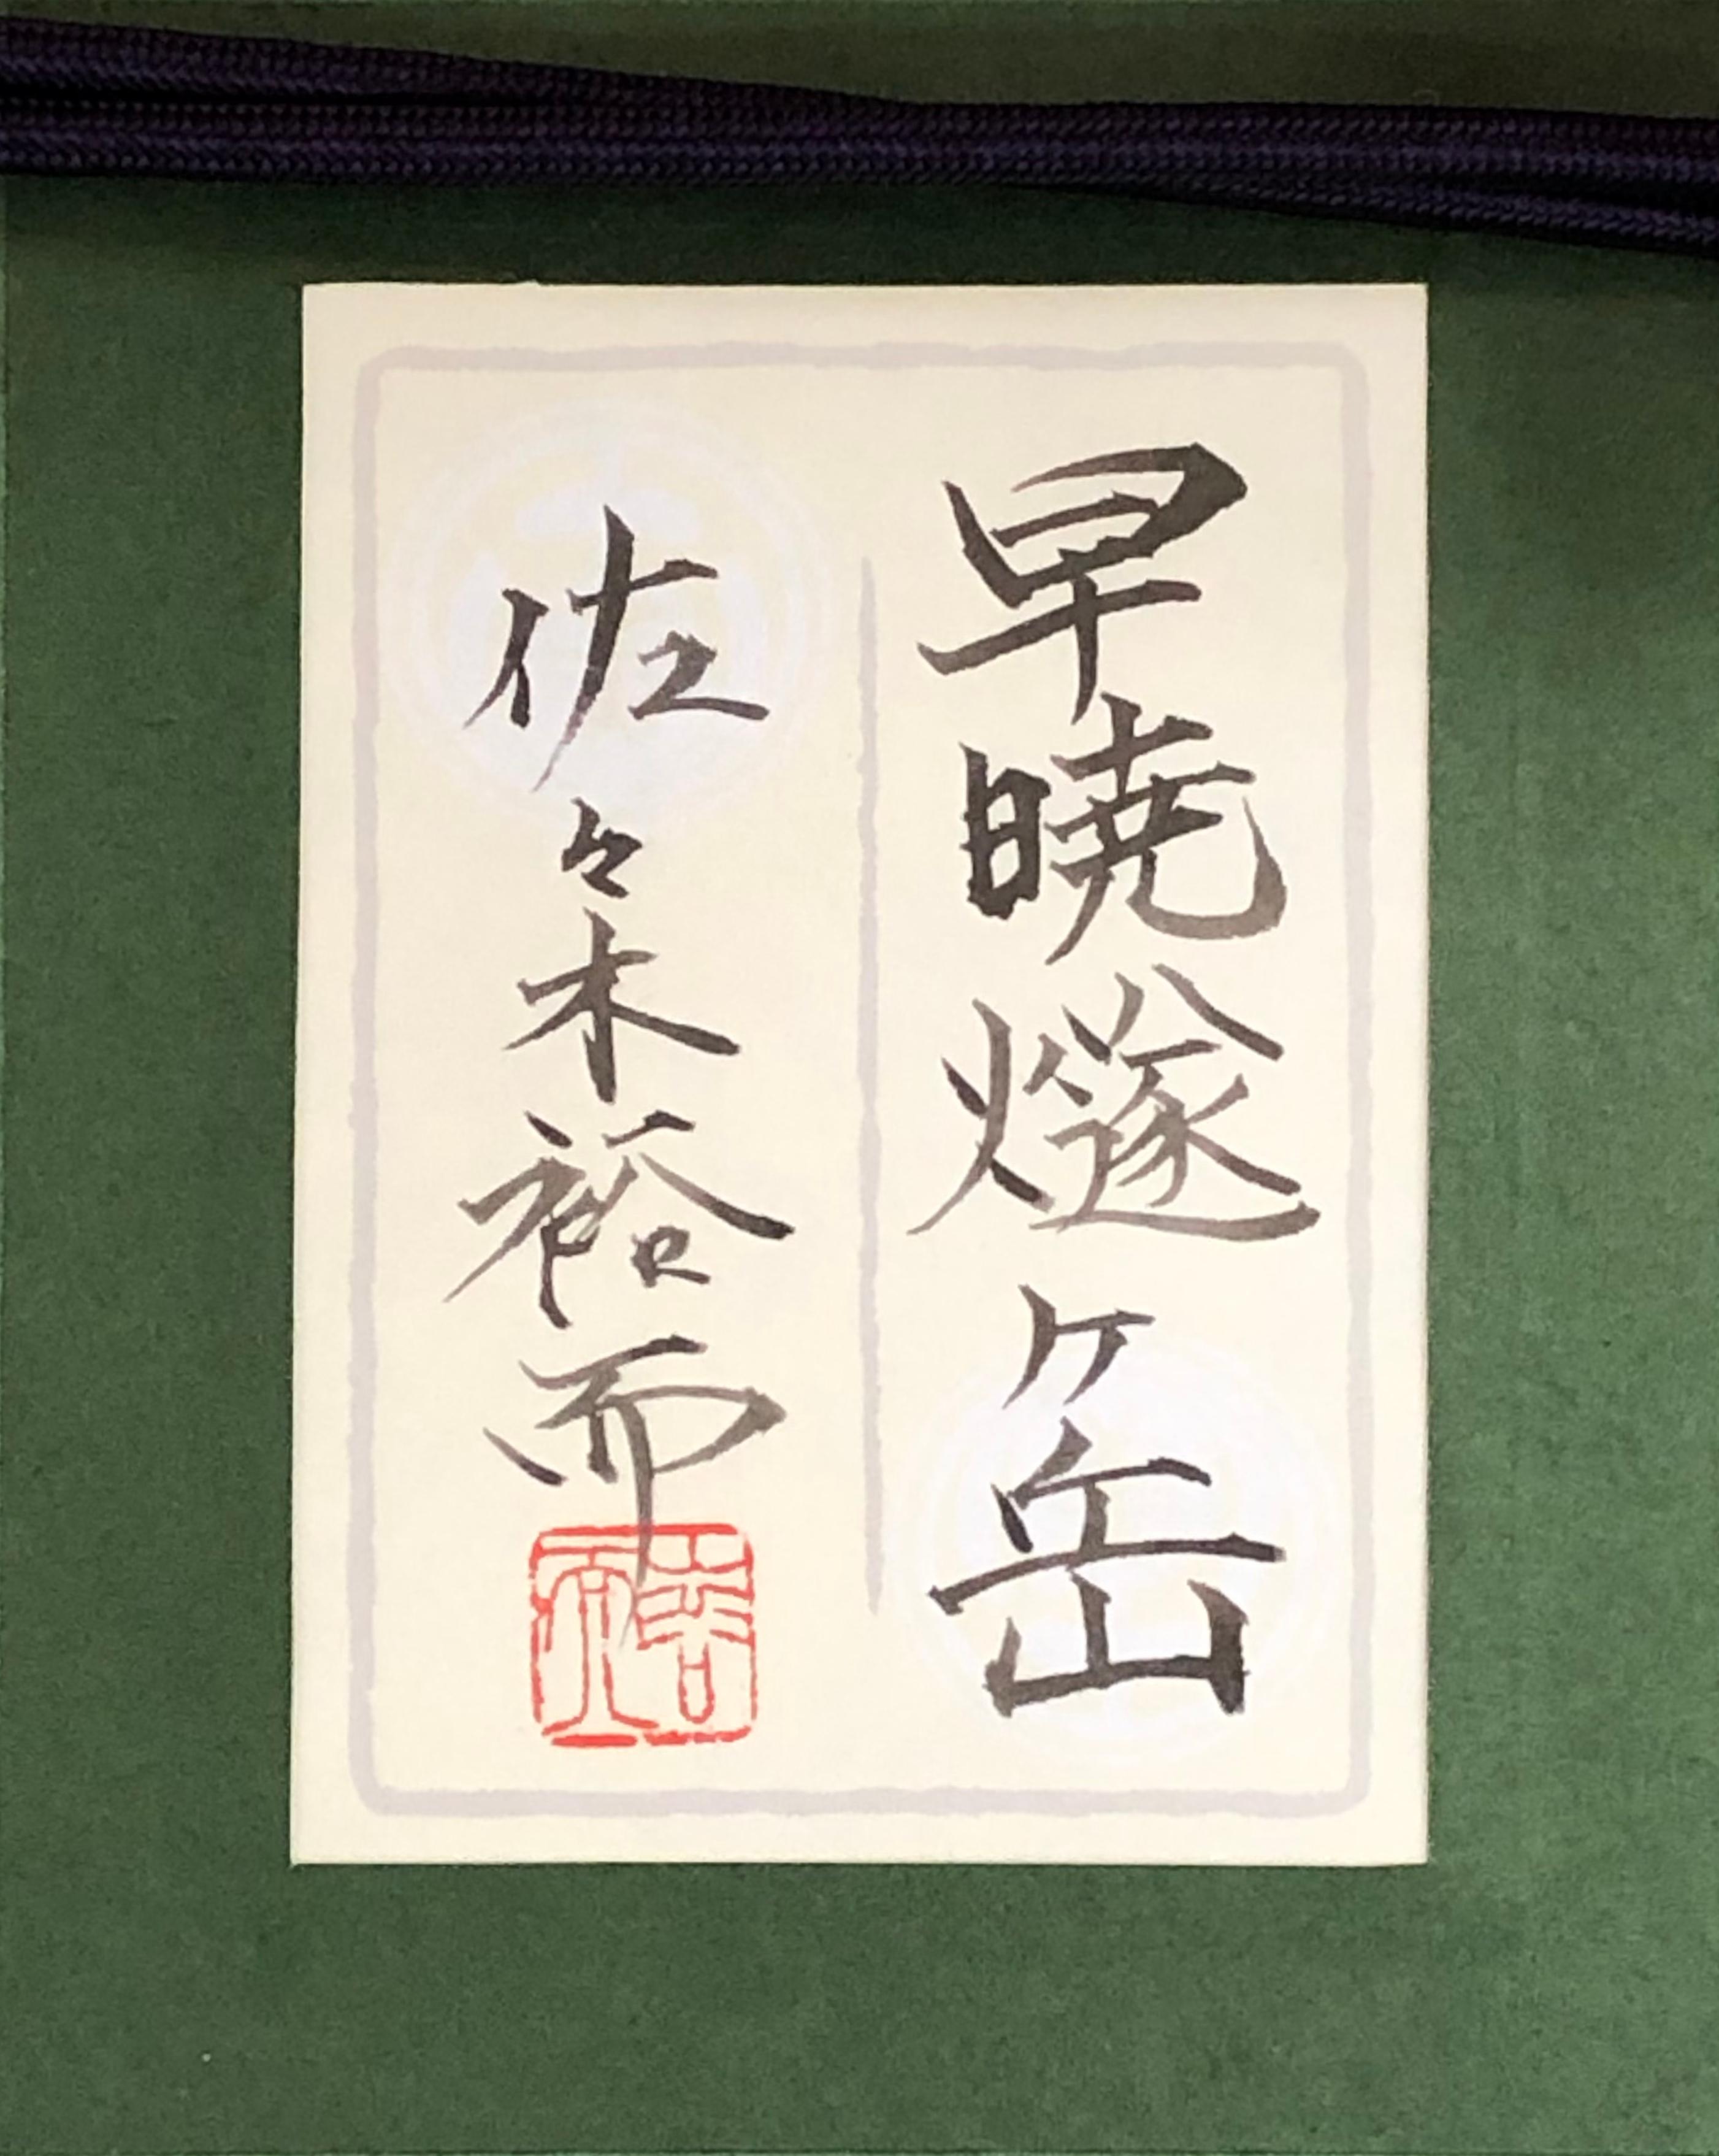 早暁燧ヶ岳
佐々木裕而